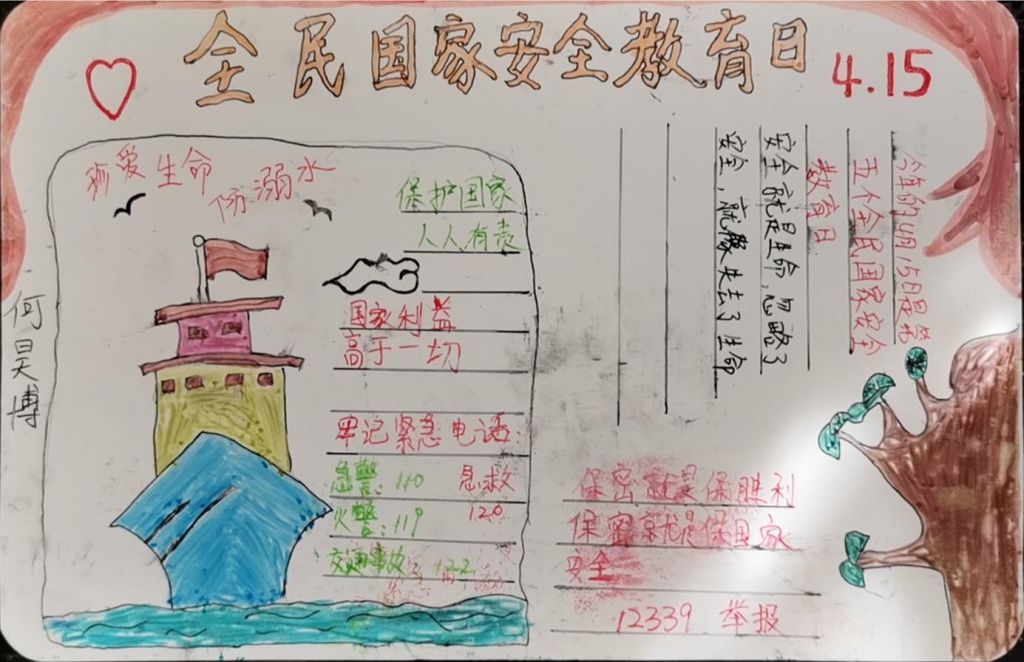 全民国家安全教育日 4.15
珍爱生命
防溺水
保护国家
人人有责
国家利益
高于一切
牢记紧急电话:
急警:110 急救
火警:119 120
交通事故 122
今年的4月15日是第
五个全民国家安全
教育日
安全就是生命,忽略了
安全,就像失去了生命
保密就是保胜利
保密就是保国家
安全
12339 举报
何昊博